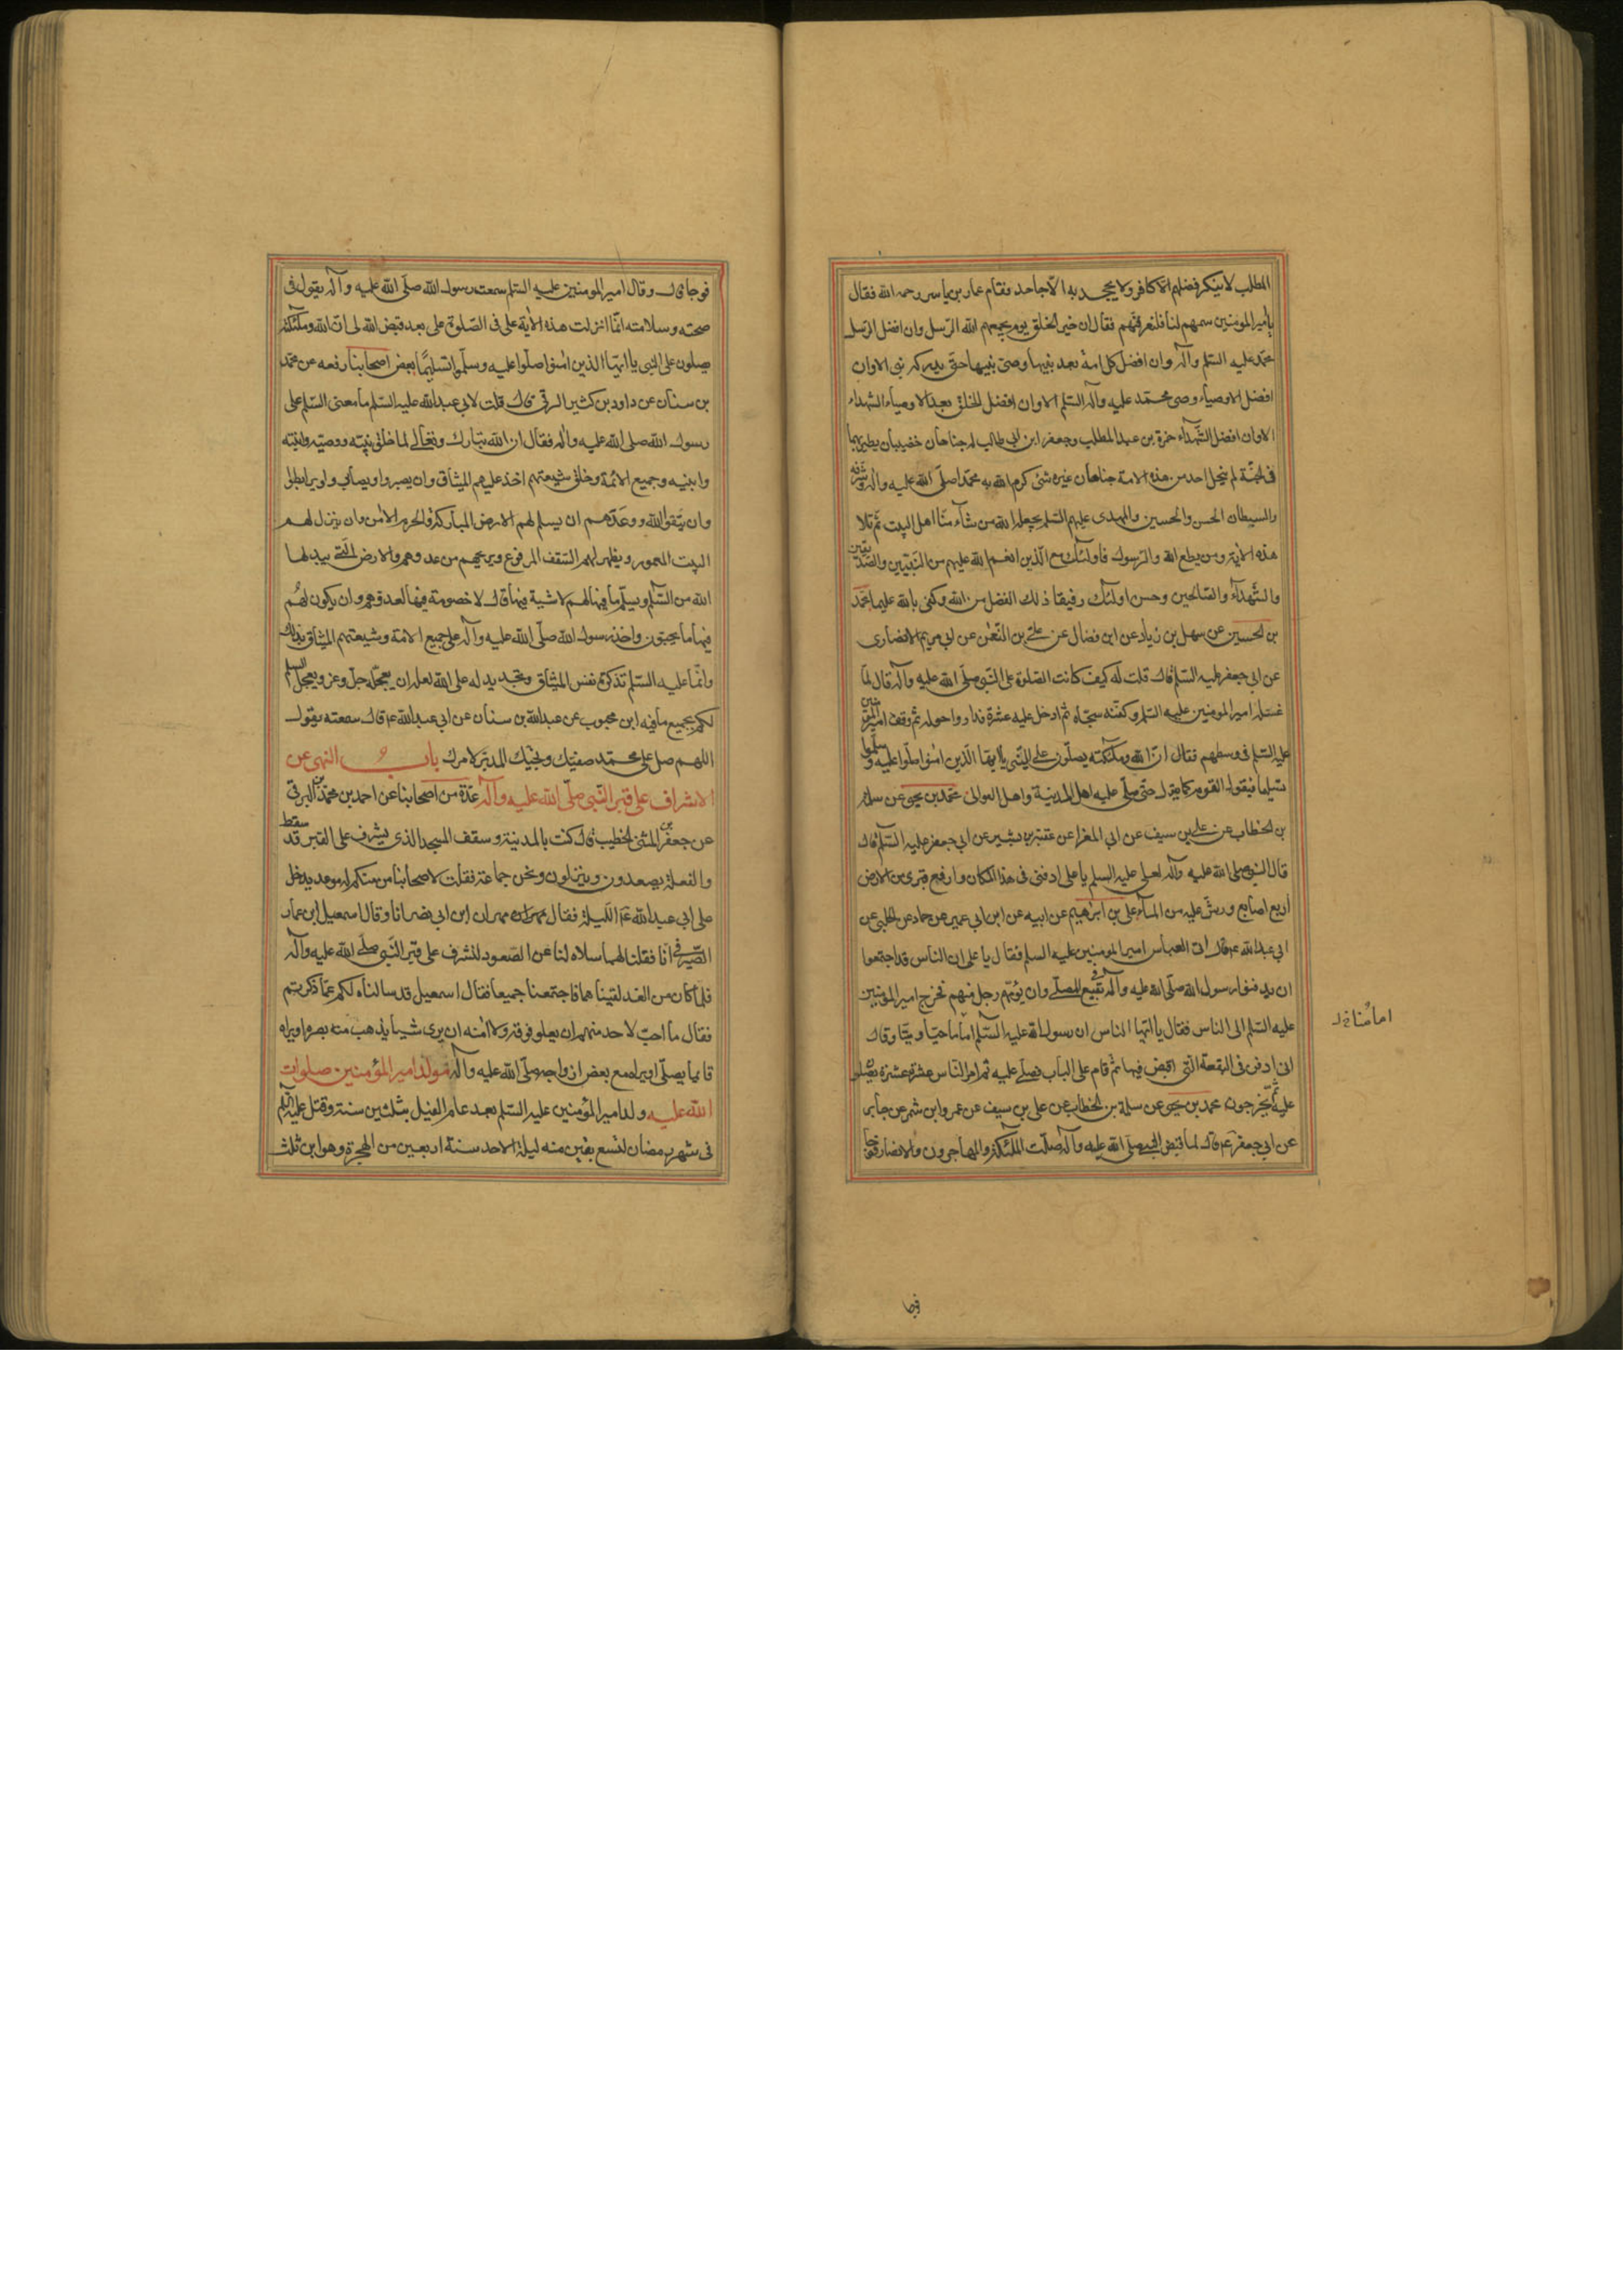 المطلب لا ينكر فضلهم الا كافر ولا يجحد به الا جاحد فقام عمار بن ياسر رحمه الله فقال
يا امير المومنين سمهم لنا فلنعرفنهم فقال ان خير الخلق يوم يجمعهم الله الرّسل وان افضل الرّسل
محمّد عليه السّلم وآله وان افضل كل امة بعد نبيها وصى نبيها حتى يدركه نبى الا وان
افضل الاوصياء وصى محمّد عليه وآله السّلم الا وان افضل الخلق بعد الاوصياء الشهداء
الا وان افضل الشّهداء حمزة بن عبد المطلب وجعفر ابن ابى طالب له جناحان خضيبان يطير بهما
فى الجنّة لم ينحل احد من هذه الامة جناحان غيره شئ كرم الله به محمّدا صلّى الله عليه وآله وشرّفه
والسبطان الحسن والحسين والمهدى عليهم السّلم يجعله الله من شاء منّا اهل البيت ثم تلا
هذه الآية ومن يطع الله والرّسول فاولئك مع الّذين انعم الله عليهم من النّبيّين والصّدّيقين
والشّهدآء والصّالحين وحسن اولئك رفيقا ذلك الفضل من الله وكفى بالله عليما محمّد
بن الحسين عن سهل بن زياد عن ابن فضال عن على بن النّعمن عن ابى مريم الانصارى
عن ابى جعفر عليه السّلم قال قلت له كيف كانت الصّلوة على النّبى صلّى الله عليه وآله قال لمّا
غسله امير المومنين عليه السّلم وكفّنه سجّاه ثم ادخل عليه عشرة فداروا حوله ثم وقف امير المؤمنين
عليه السّلم فى وسطهم فقال انّ الله وملئكته يصلّون على النّبى يا ايّها الّذين امنوا صلّوا عليه وسلّموا
تسليما فيقول القوم كما يقول حتى صلّى عليه اهل المدينة واهل العوالى محمّد بن يحيى عن سلمة
بن الخطاب عن على بن سيف عن ابى المغرا عن عقبة بن بشير عن ابى جعفر عليه السّلم قال
قال النبى صلى الله عليه وآله لعلى عليه السلم يا على ادفنى فى هذا المكان وارفع قبرى من الارض
اربع اصابع ورشّ عليه من المآء على بن ابرهيم عن ابيه عن ابن ابى عمير عن حماد عن الحلبى عن
ابى عبد الله ع قال اتى العباس امير المومنين عليه السلم فقال يا على ان الناس قد اجتمعوا
ان يدفنوا رسول الله صلّى الله عليه وآله فى بقيع المصلّى وان يؤمّهم رجل منهم فخرج امير المؤمنين
عليه السّلم الى الناس فقال يا ايّها الناس ان رسول الله عليه السّلم اماما حيّا وميتا وقال
امامُنا خ ل
انى ادفن فى البقعة الّتى اقبض فيها ثم قام على الباب فصلّى عليه ثم امر النّاس عشرة عشرة يصلّون
عليه ثم يخرجون محمد بن يحيى عن سلمة بن الخطاب عن على بن سيف عن عمرو ابن شمر عن جابر
عن ابى جعفر ع قال لما قبض النبى صلى الله عليه وآله صلّت الملئكة والمهاجرون والانصار فوجا
فوجا
فوجا قال وقال امير المومنين عليه السّلم سمعت رسول الله صلّى الله عليه وآله يقول فى
صحته وسلامته انّما انزلت هذه الآية على فى الصّلوة على بعد قبض الله لى انّ الله وملئكته
يصلون على النبى يا ايّها الذين امنوا صلّوا عليه وسلّموا تسليمًا بعض اصحابنا رفعه عن محمد
بن سنان عن داود بن كثير الرقى قال قلت لابى عبد الله عليه السّلم ما معنى السّلم على
رسول الله صلى الله عليه وآله فقال ان الله تبارك وتعالى لما خلق نبيّه ووصيّه وابنته
وابنيه وجميع الائمّة وخلق شيعتهم اخذ عليهم الميثاق وان يصبروا ويصابروا ويرابطوا
وان يتّقوا الله ووعدهم ان يسلم لهم الارض المباركة والحرم الامن وان ينزل لهم
البيت المعمور ويظهر لهم السّقف المرفوع ويريحهم من عدوهم والارض الّتى يبدلها
الله من السّلم ويسلّم ما فيها لهم لا شية فيها قال لا خصومة فيها لعدوهم وان يكون لهم
فيها ما يحبّون واخذ رسول الله صلّى الله عليه وآله على جميع الامّة وشيعتهم الميثاق بذلك
وانّما عليه السّلم تذكرة نفس الميثاق وتجديد له على الله لعله ان يعجّله جلّ وعز ويعجل السلم
لكم بجميع ما فيه ابن محبوب عن عبد الله بن سنان عن ابى عبد الله ع قال سمعته يقول
اللهم صل على محمّد صفيّك ونجيّك المدبّر لامرك باب النهى عن
الاشراف على قبر النّبى صلّى الله عليه وآله عدّة من اصحابنا عن احمد بن محمّد بن البرقى
عن جعفر بن المثنى الخطيب قال كنت بالمدينة وسقف المسجد الذى يشرف على القبر قد سقط
والفعلة يصعدون وينزلون ونحن جماعة فقلت لاصحابنا من منكم له موعد يدخل
على ابى عبد الله ع الليلة فقال مهران ابن ابى نصر انا وقال اسمعيل ابن عمار
الصّيرفى انا فقلنا لهما سلاه لنا عن الصّعود لنشرف على قبر النّبى صلّى الله عليه وآله
فلما كان من الغد لقيناهما فاجتمعنا جميعا فقال اسمعيل قد سالناه لكم عمّا ذكرتم
فقال ما احبّ لاحد منهم ان يعلو فوقه ولا امنه ان يرى شيئا يذهب منه بصره او يراه
قائما يصلّى او يراه مع بعض ازواجه صلّى الله عليه وآله مولد امير المؤمنين صلوات
الله عليه ولد امير المؤمنين عليه السّلم بعد عام الفيل بثلثين سنة وقتل عليه السّلم
فى شهر رمضان لتسع بقين منه ليلة الاحد سنة اربعين من الهجرة وهو ابن ثلث